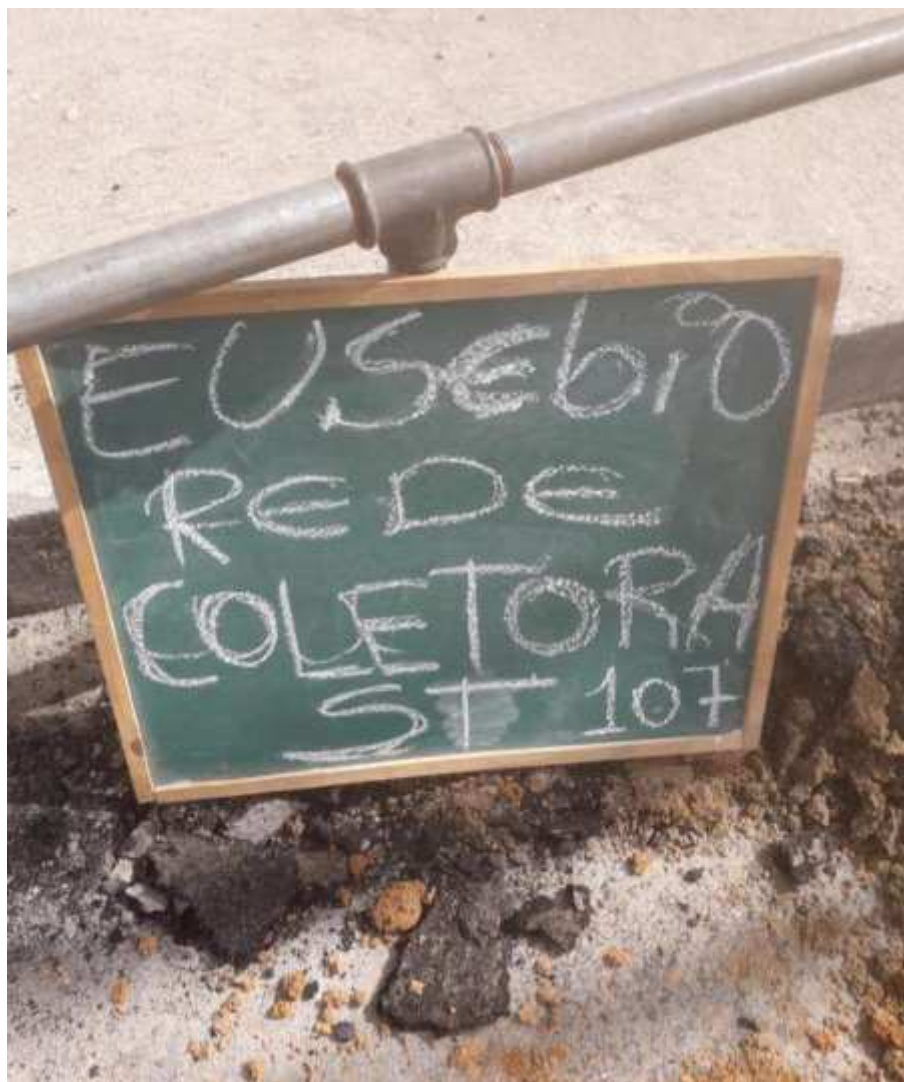 EUSEbiO
REDE
COLETORA
ST 107